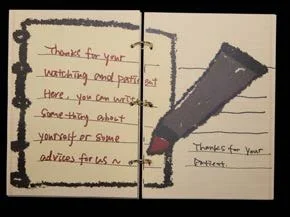 Thanks for your
watching and patient
Here, you can write
something about
yourself or some
advices for us ~
Thanks for your
patient.